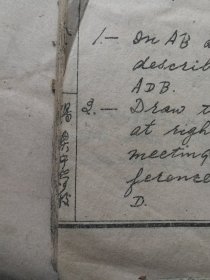 1.— On AB d
describ
ADB.
2.— Draw t
at righ
meeting
ference
D.